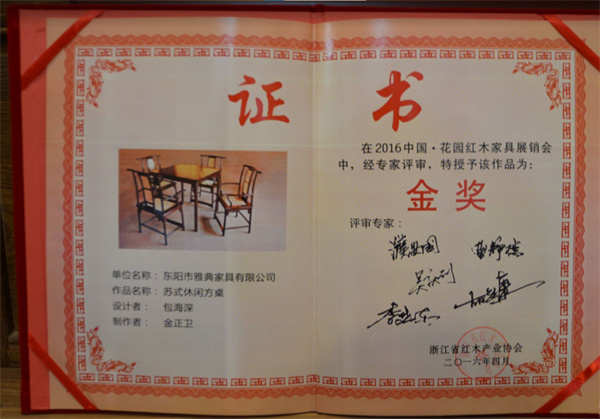 证书
单位名称：东阳市雅典家具有限公司
作品名称：苏式休闲方桌
设计者：包海深
制作者：金正卫
在2016中国·花园红木家具展销会
中，经专家评审，特授予该作品为：
金奖
评审专家：
浙江省红木产业协会
二〇一六年四月